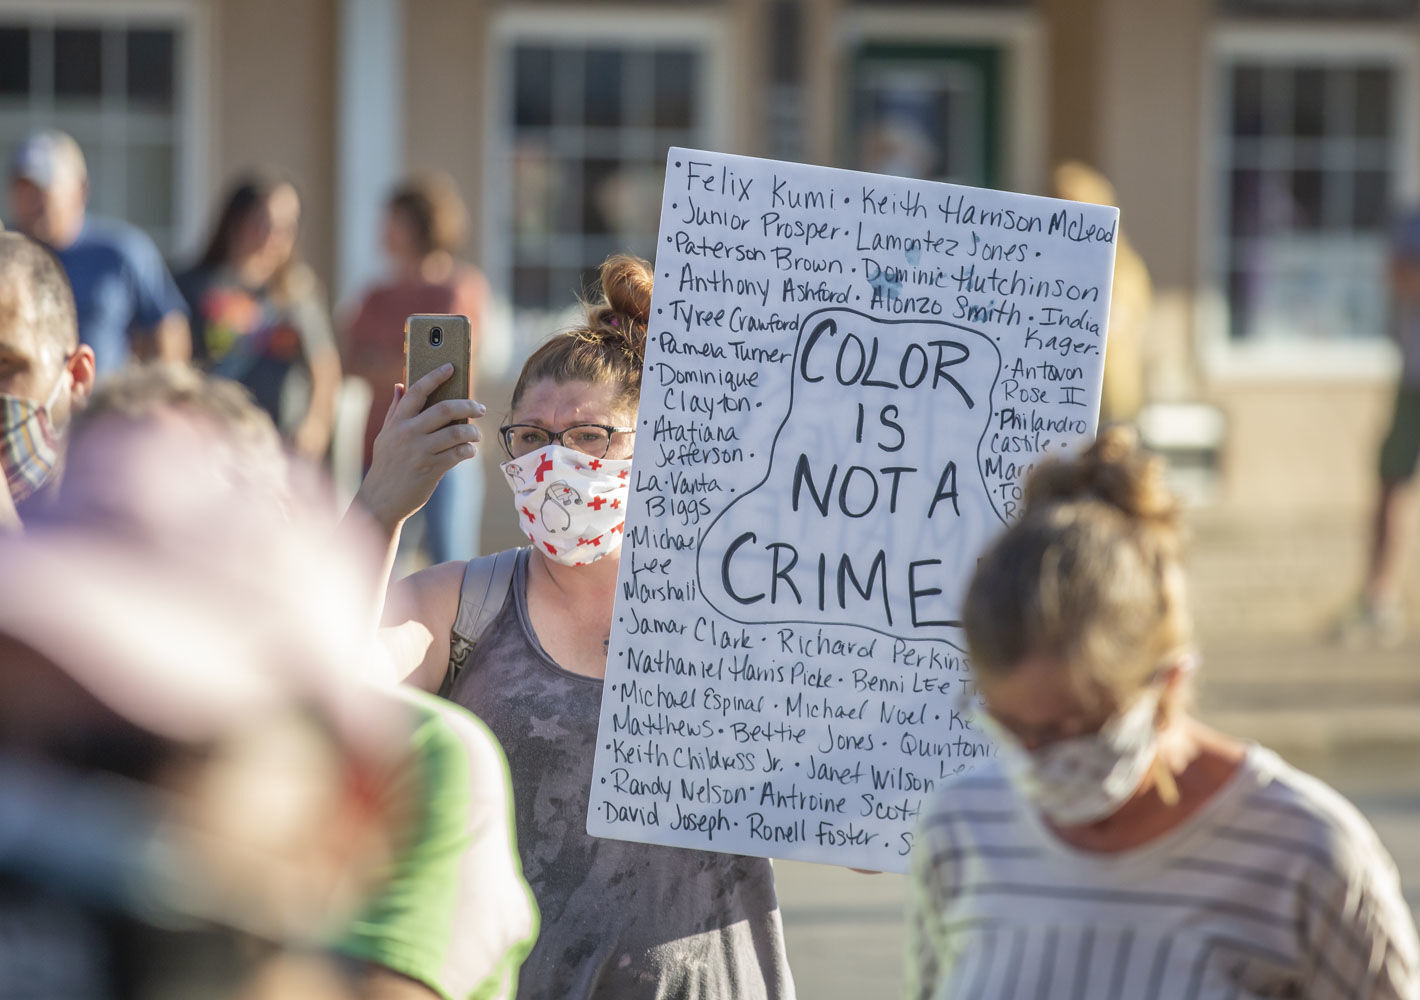 • Felix Kumi • Keith Harrison McLeod
• Junior Prosper • Lamontez Jones •
• Paterson Brown • Dominic Hutchinson
• Anthony Ashford • Alonzo Smith • India
Kager •
• Tyree Crawford
• Pamela Turner
• Dominique
Clayton •
• Atatiana
Jefferson •
La•Vanta •
Biggs
• Michael
Lee
Marshall
COLOR
IS
NOT A
CRIME
• Antwon
Rose II
• Philandro
Castile •
• Jamar Clark • Richard Perkins
• Nathaniel Harris Picke • Benni LEe
• Michael Espinal • Michael Noel •
Matthews • Bettie Jones •
• Keith Childress Jr. • Janet Wilson
• Randy Nelson • Antroine Scott
• David Joseph • Ronell Foster •